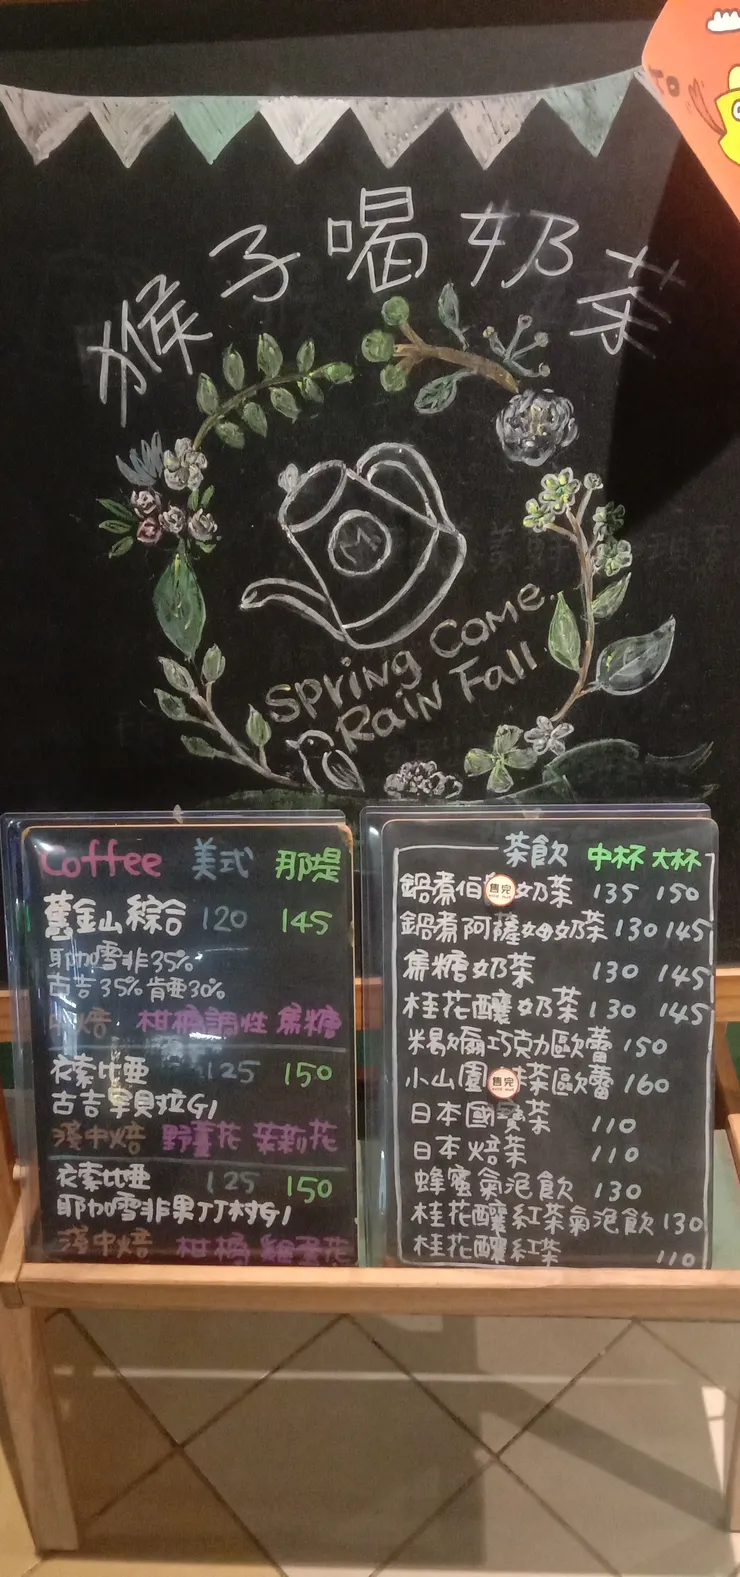 猴子喝奶茶
M
Spring Come.
Rain Fall
Coffee 美式 那堤
舊金山綜合 120 145
耶加雪非35%
古吉35% 肯亞30%
焙 柑橘調性 焦糖
衣索比亞 125 150
古吉 拿貝拉G1
淺中焙 野薑花 茉莉花
衣索比亞 125 150
耶加雪非果丁丁村G1
淺中焙 柑橘
茶飲 中杯 大杯
鍋煮伯 售完 奶茶 135 150
鍋煮阿薩姆奶茶 130 145
焦糖奶茶 130 145
桂花釀奶茶 130 145
巧克力歐蕾 150
小山園 售完 茶歐蕾 160
日本國寶茶 110
日本焙茶 110
蜂蜜氣泡飲 130
桂花釀紅茶氣泡飲 130
桂花釀紅茶 110